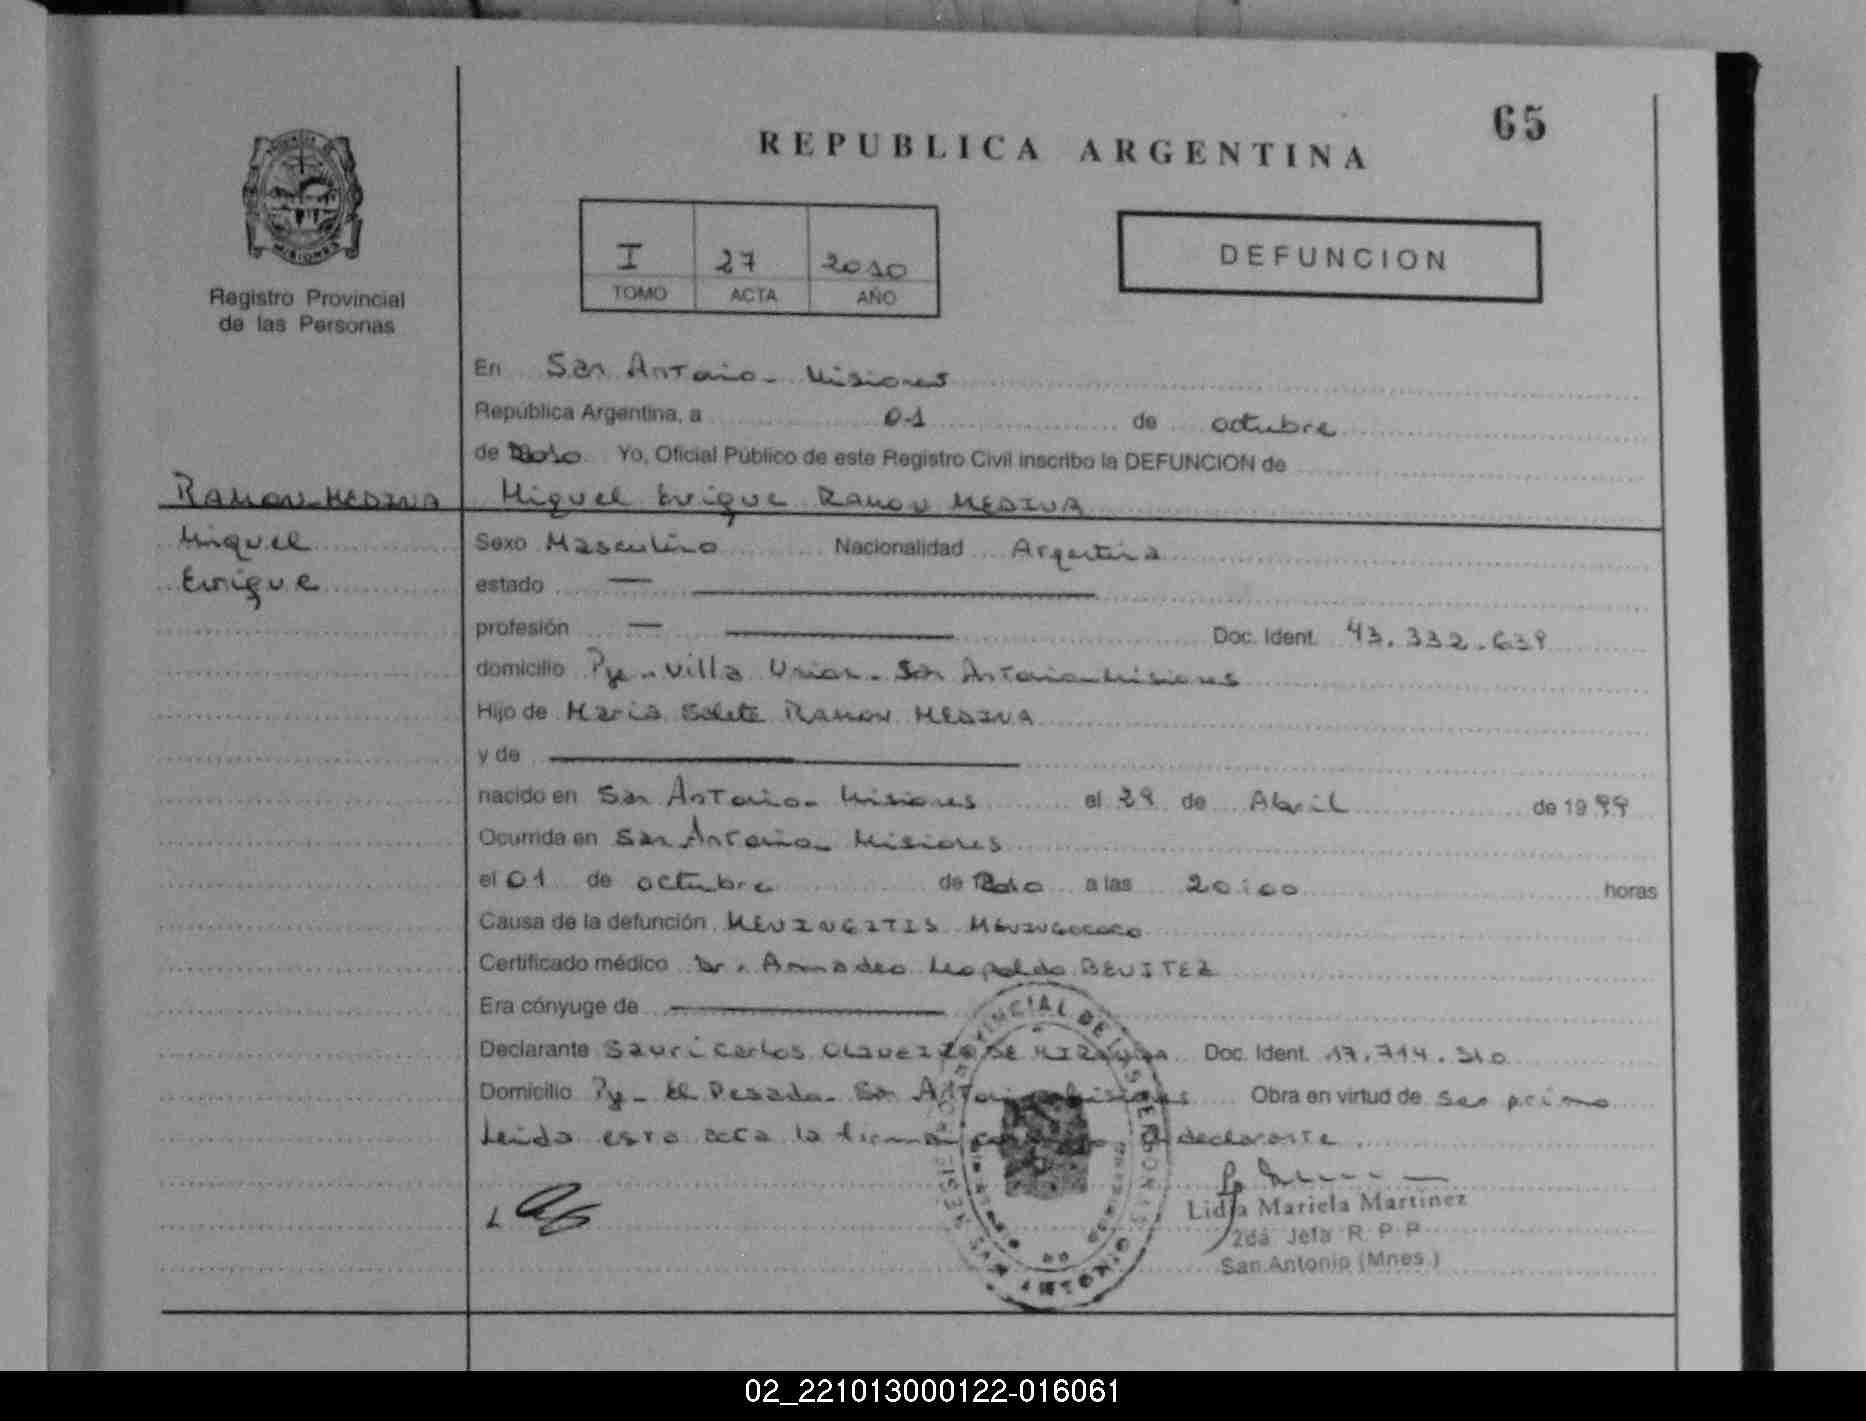 65
REPUBLICA ARGENTINA
MISIONES
Registro Provincial
de las Personas
I 27 2010
TOMO ACTA AÑO
DEFUNCION
En San Antonio - Misiones
República Argentina, a 01 de octubre
de 2010 Yo, Oficial Público de este Registro Civil inscribo la DEFUNCION de
RAMON MEDINA Miguel Enrique RAMON MEDINA
Miguel
Enrique
Sexo Masculino Nacionalidad Argentina
estado —
profesión — Doc. Ident. 43.332.639
domicilio Pje - Villa Union - San Antonio - Misiones
Hijo de Maria Salete RAMON MEDINA
y de
nacido en San Antonio - Misiones el 29 de Abril de 1999
Ocurrida en San Antonio - Misiones
el 01 de octubre de 2010 a las 20:00 horas
Causa de la defunción MENINGITIS MENINGOCOCO
Certificado médico Dr. Amadeo Leopoldo BENITEZ
Era cónyuge de
Declarante Sauri Carlos DE MIRANDA Doc. Ident. 17.714.310
Domicilio Pje - El Pesado - San Antonio - Misiones Obra en virtud de ser primo
Leida esta acta la firma el declarante
Lidia Mariela Martinez
2da Jefa R. P. P
San Antonio (Mnes.)
02_221013000122-016061